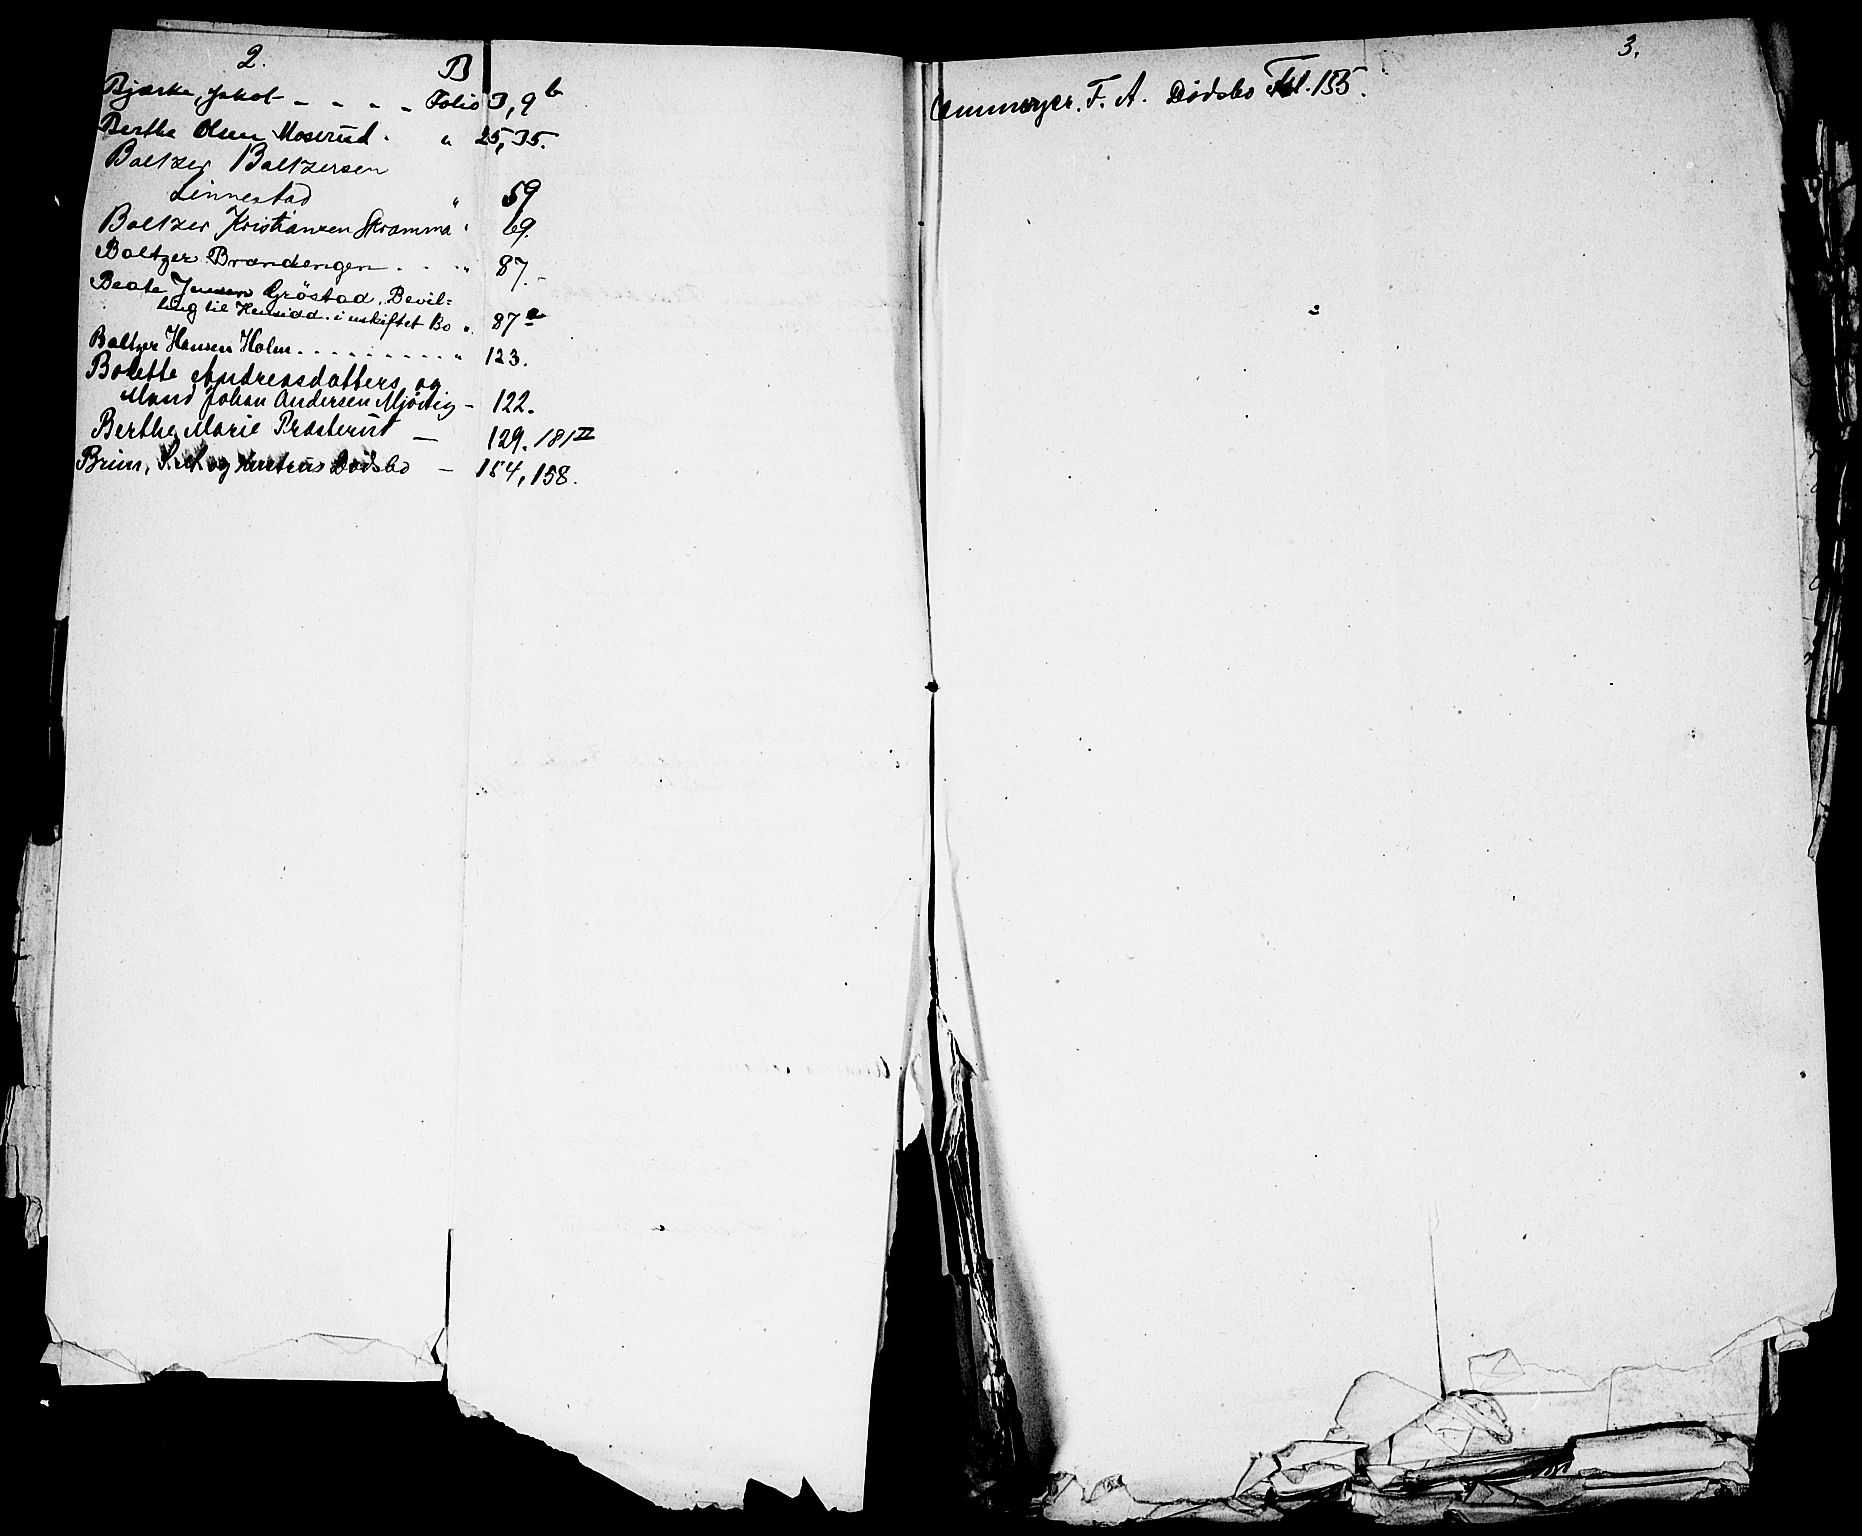 2.
B
Bjærke, Jakob - - - - Folio 3, 9 b
Berthe Olsen Moserud. " 25, 35.
Baltzer Baltzersen
Linnestad " 59
Baltzer Kristianzen Skramma " 69.
Baltzer Brandengen . . . " 87.
Beate Jensen Gröstad, Bevil=
ling til Hensidd. i uskiftet Bo " 87 a
Baltzer Hansen Holm . . . . . . . . . . " 123.
Bolette Andreasdatters og
Mand Johan Andersen Mjödig - 122.
Berthe Marie Præsterud - 129. 181 II
Brun, og Hustrus Dødsbo - 154, 158.
3.
F. A. Dødsbo Fol. 155.